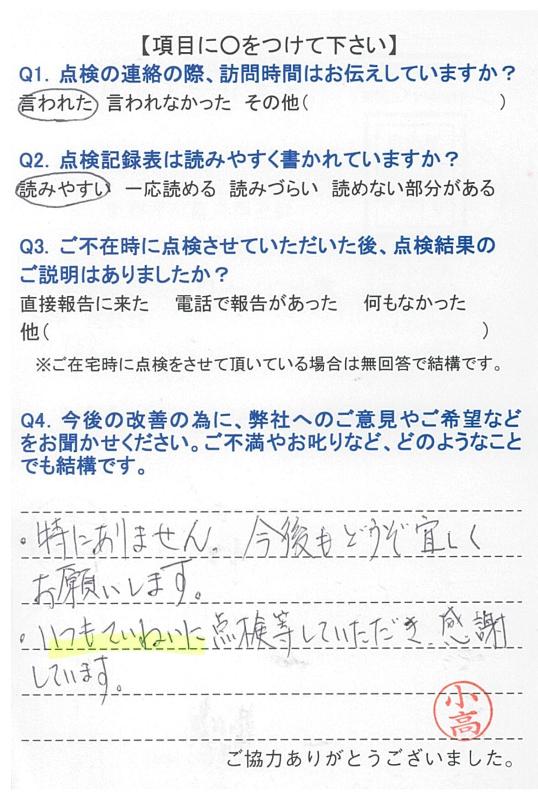 【項目に〇をつけて下さい】
Q1. 点検の連絡の際、訪問時間はお伝えしていますか？
言われた 言われなかった その他( )
Q2. 点検記録表は読みやすく書かれていますか？
読みやすい 一応読める 読みづらい 読めない部分がある
Q3. ご不在時に点検させていただいた後、点検結果の
ご説明はありましたか？
直接報告に来た 電話で報告があった 何もなかった
他( )
※ご在宅時に点検をさせて頂いている場合は無回答で結構です。
Q4. 今後の改善の為に、弊社へのご意見やご希望など
をお聞かせください。ご不満やお叱りなど、どのようなこと
でも結構です。
・特にありません。今後もどうぞ宜しく
お願いします。
・いつもていねいに点検等していただき感謝
しています。
小高
ご協力ありがとうございました。